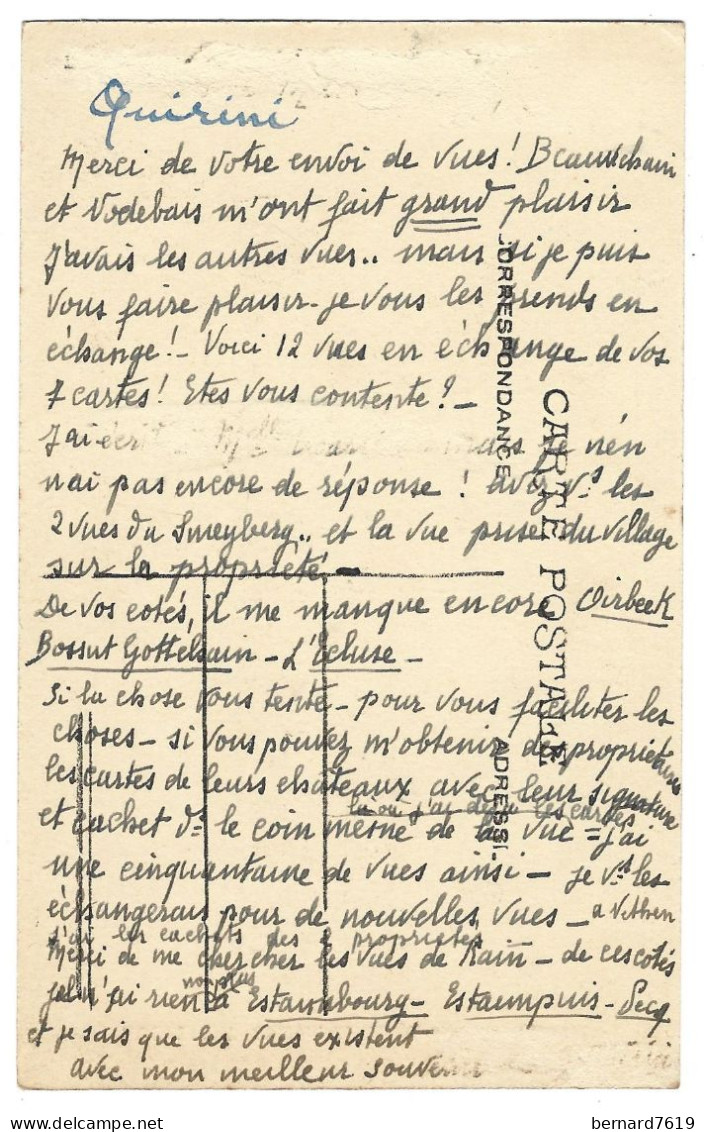 Quirini
Merci de votre envoi de vues! Beauvechain
et Vodebais m'ont fait grand plaisir
J'avais les autres vues.. mais si je puis
vous faire plaisir - je vous les prends en
échange! - Voici 12 vues en échange de vos
7 cartes! Etes vous contente? -
J'ai écrit à mais je n'en
n'ai pas encore de réponse! avez vs les
2 vues du Smeyberg.. et la vue prise du village
sur la propriété. -
De vos cotés, il me manque encore Oirbeek
Bossut Gottechain - L'écluse -
Si la chose vous tente - pour vous faciliter les
choses - si vous pouvez m'obtenir des propriétaires
les cartes de leurs châteaux avec leur signature
là où j'ai déjà les cartes
et cachet ds le coin même de la vue = j'ai
une cinquantaine de vues ainsi - je vs les
échangerais pour de nouvelles vues - a
j'ai les cachets des 2 propriétés
Merci de me chercher les vues de - de ces cotés
non plus
je n'ai rien à Estaimbourg - Estaimpuis - Pecq
et je sais que les vues existent
avec mon meilleur souvenir
CARTE POSTALE
CORRESPONDANCE
ADRESSE
bernard7619